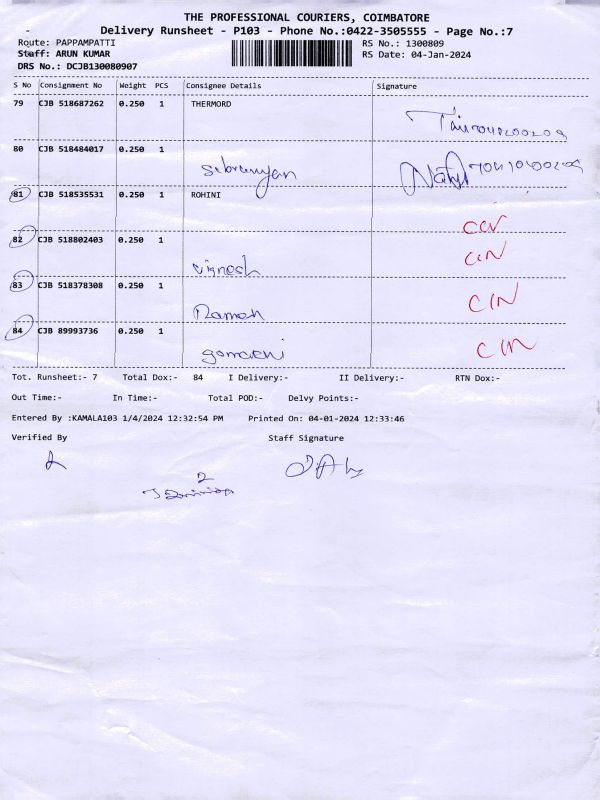 THE PROFESSIONAL COURIERS, COIMBATORE
Delivery Runsheet - P103 - Phone No.:0422-3505555 - Page No.:7
Route: PAPPAMPATTI RS No.: 1300809
Staff: ARUN KUMAR RS Date: 04-Jan-2024
DRS No.: DCJB130080907
S No Consignment No Weight PCS Consignee Details Signature
79 CJB 518687262 0.250 1 THERMORD
80 CJB 518484017 0.250 1
81 CJB 518535531 0.250 1 ROHINI
82 CJB 518802403 0.250 1 vignesh CIN
83 CJB 518378308 0.250 1 Raman CIN
84 CJB 89993736 0.250 1 gomathi CIN
Tot. Runsheet:- 7 Total Dox:- 84 I Delivery:- II Delivery:- RTN Dox:-
Out Time:- In Time:- Total POD:- Delvy Points:-
Entered By :KAMALA103 1/4/2024 12:32:54 PM Printed On: 04-01-2024 12:33:46
Verified By Staff Signature